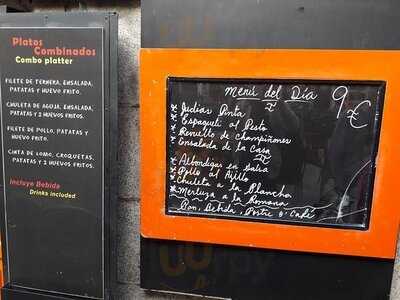 Platos
Combinados
Combo platter
FILETE DE TERNERA, ENSALADA,
PATATAS Y HUEVO FRITO.
CHULETA DE AGUJA, ENSALADA,
PATATAS Y 2 HUEVOS FRITOS.
FILETE DE POLLO, PATATAS Y
HUEVO FRITO.
CINTA DE LOMO, CROQUETAS,
PATATAS Y 2 HUEVOS FRITOS.
Incluye Bebida
Drinks included
Menú del Día 9€
I
* Judias Pinta
* Espagueti al Pesto
* Revuello de Champiñones
* Ensalada de la Casa
II
* Albondigas en Salsa
* Pollo al Ajillo
* Chuleta a la Plancha
* Merluza a la Romana
Pan, Bebida, Postre o Café